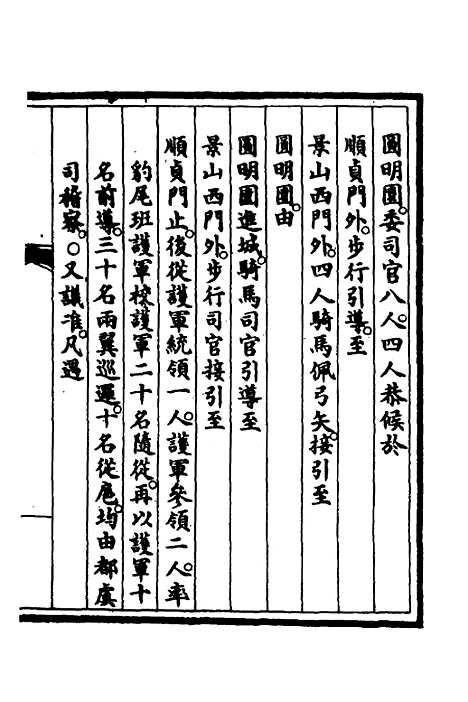 圓明園。委司官八人。四人恭候於
順貞門外。步行引導。至
景山西門外。四人騎馬佩弓矢。接引至
圓明園。由
圓明園進城。騎馬司官引導至
景山西門外。步行司官接引至
順貞門止。後從護軍統領一人。護軍參領二人。率
豹尾班護軍校護軍二十名隨從。再以護軍十
名前導。三十名兩翼巡邏。十名從扈。均由都虞
司稽察。○又議准。凡遇